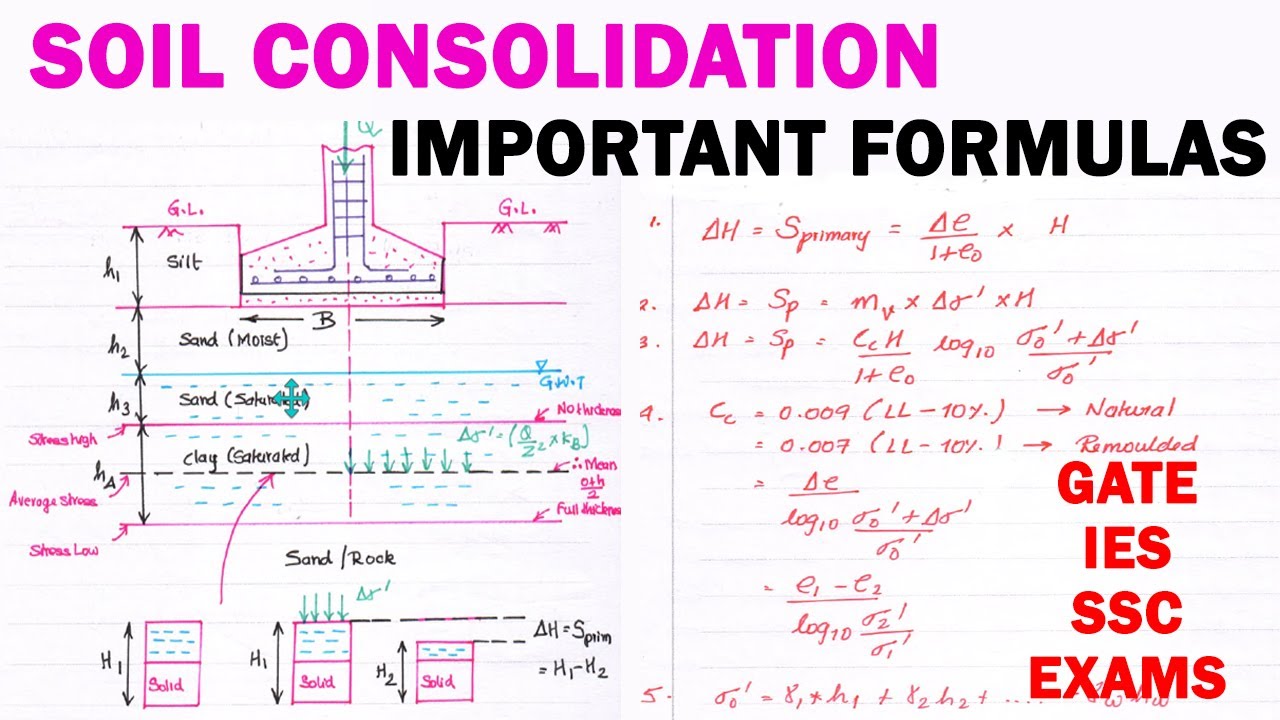 SOIL CONSOLIDATION
IMPORTANT FORMULAS
Q
G.L.
G.L.
h₁
Silt
B
h₂
Sand (Moist)
G.W.T
h₃
Sand (Saturated)
No thickness
Stress high
Δσ' = (Q/Z² × K_B)
Clay (Saturated)
h₄
∴ Mean
0+h/2
Average stress
Full thickness
Stress Low
Sand/Rock
Δσ'
H₁
Solid
H₁
Solid
H₂
Solid
ΔH = Sprim
= H₁-H₂
1. ΔH = Sprimary = Δe/1+e₀ × H
2. ΔH = Sp = mv × Δσ' × H
3. ΔH = Sp = CcH/1+e₀ log₁₀ σ₀'+Δσ'/σ₀'
4. Cc = 0.009 (LL-10%) → Natural
= 0.007 (LL-10%) → Remoulded
= Δe/log₁₀ σ₀'+Δσ'/σ₀'
= e₁-e₂/log₁₀ σ₂'/σ₁'
5. σ₀' = γ₁*h₁ + γ₂h₂ + ....
GATE
IES
SSC
EXAMS